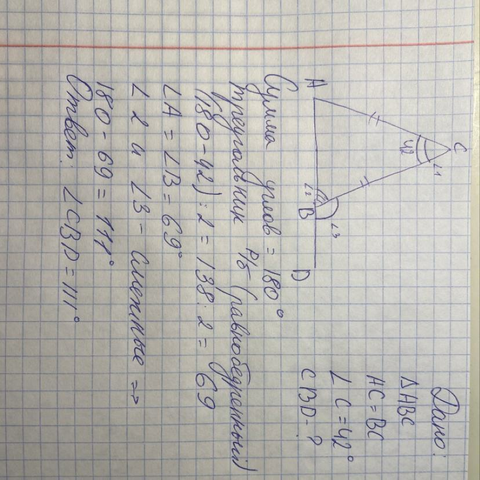 Дано:
ΔABC
AC = BC
∠C = 42°
CBD - ?
A
C
42
∠1
∠2
B
∠3
D
Сумма углов = 180°
треугольник р/б (равнобедренный)
(180 - 42) : 2 = 138 : 2 = 69
∠A = ∠B = 69°
∠2 и ∠3 - смежные =>
180 - 69 = 111°
Ответ: ∠CBD = 111°